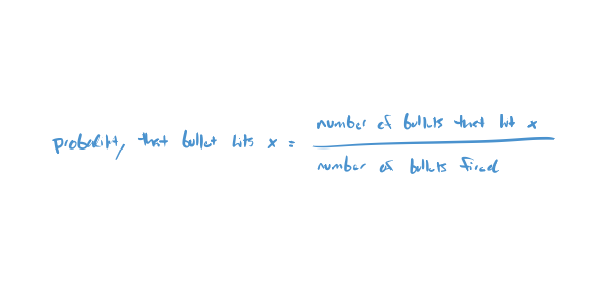 probability that bullet hits x =
number of bullets that hit x
number of bullets fired